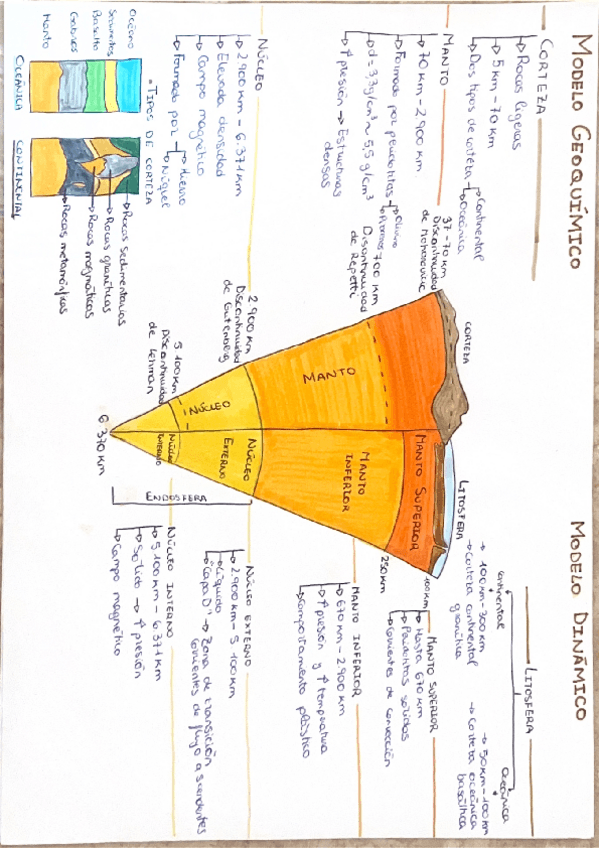 MODELO GEOQUÍMICO
CORTEZA
Rocas ligeras
5 km - 70 km
Dos tipos de corteza
Continental
Oceánica
MANTO
70 km - 2 900 km
Formado por peridotitas
Olivino
Piroxenos
d = 3,3 g/cm³ ~ 5,5 g/cm³
↑ presión → Estructuras
densas
NÚCLEO
2 900 km - 6 371 km
Elevada densidad
Campo magnético
Formado por
Hierro
Níquel
TIPOS DE CORTEZA
Océano
Sedimentos
Basalto
Gabros
Manto
OCEÁNICA
Rocas sedimentarias
Rocas graníticas
Rocas magmáticas
Rocas metamórficas
CONTINENTAL
37 - 70 km
Discontinuidad
de Mohorovicic
700 km
Discontinuidad
de Repetti
2 900 km
Discontinuidad
de Gutenberg
5 100 km
Discontinuidad
de Lehman
6 370 km
CORTEZA
MANTO
NÚCLEO
LITOSFERA
MANTO SUPERIOR
MANTO
INFERIOR
NÚCLEO
EXTERNO
NÚCLEO
INTERNO
100 km
250 km
ENDOSFERA
MODELO DINÁMICO
LITOSFERA
Continental
→ 100 km - 300 km
→ Corteza continental
granítica
Oceánica
→ 50 km - 100 km
→ Corteza oceánica
basáltica
MANTO SUPERIOR
Hasta 670 km
Peridotitas sólidas
Corrientes de convección
MANTO INFERIOR
670 km - 2 900 km
↑ presión y ↑ temperatura
Comportamiento plástico
NÚCLEO EXTERNO
2 900 km - 5 100 km
Líquido
"Capa D" → Zona de transición
Corrientes de flujo ascendentes
NÚCLEO INTERNO
5 100 km - 6 371 km
Sólido → ↑ presión
Campo magnético